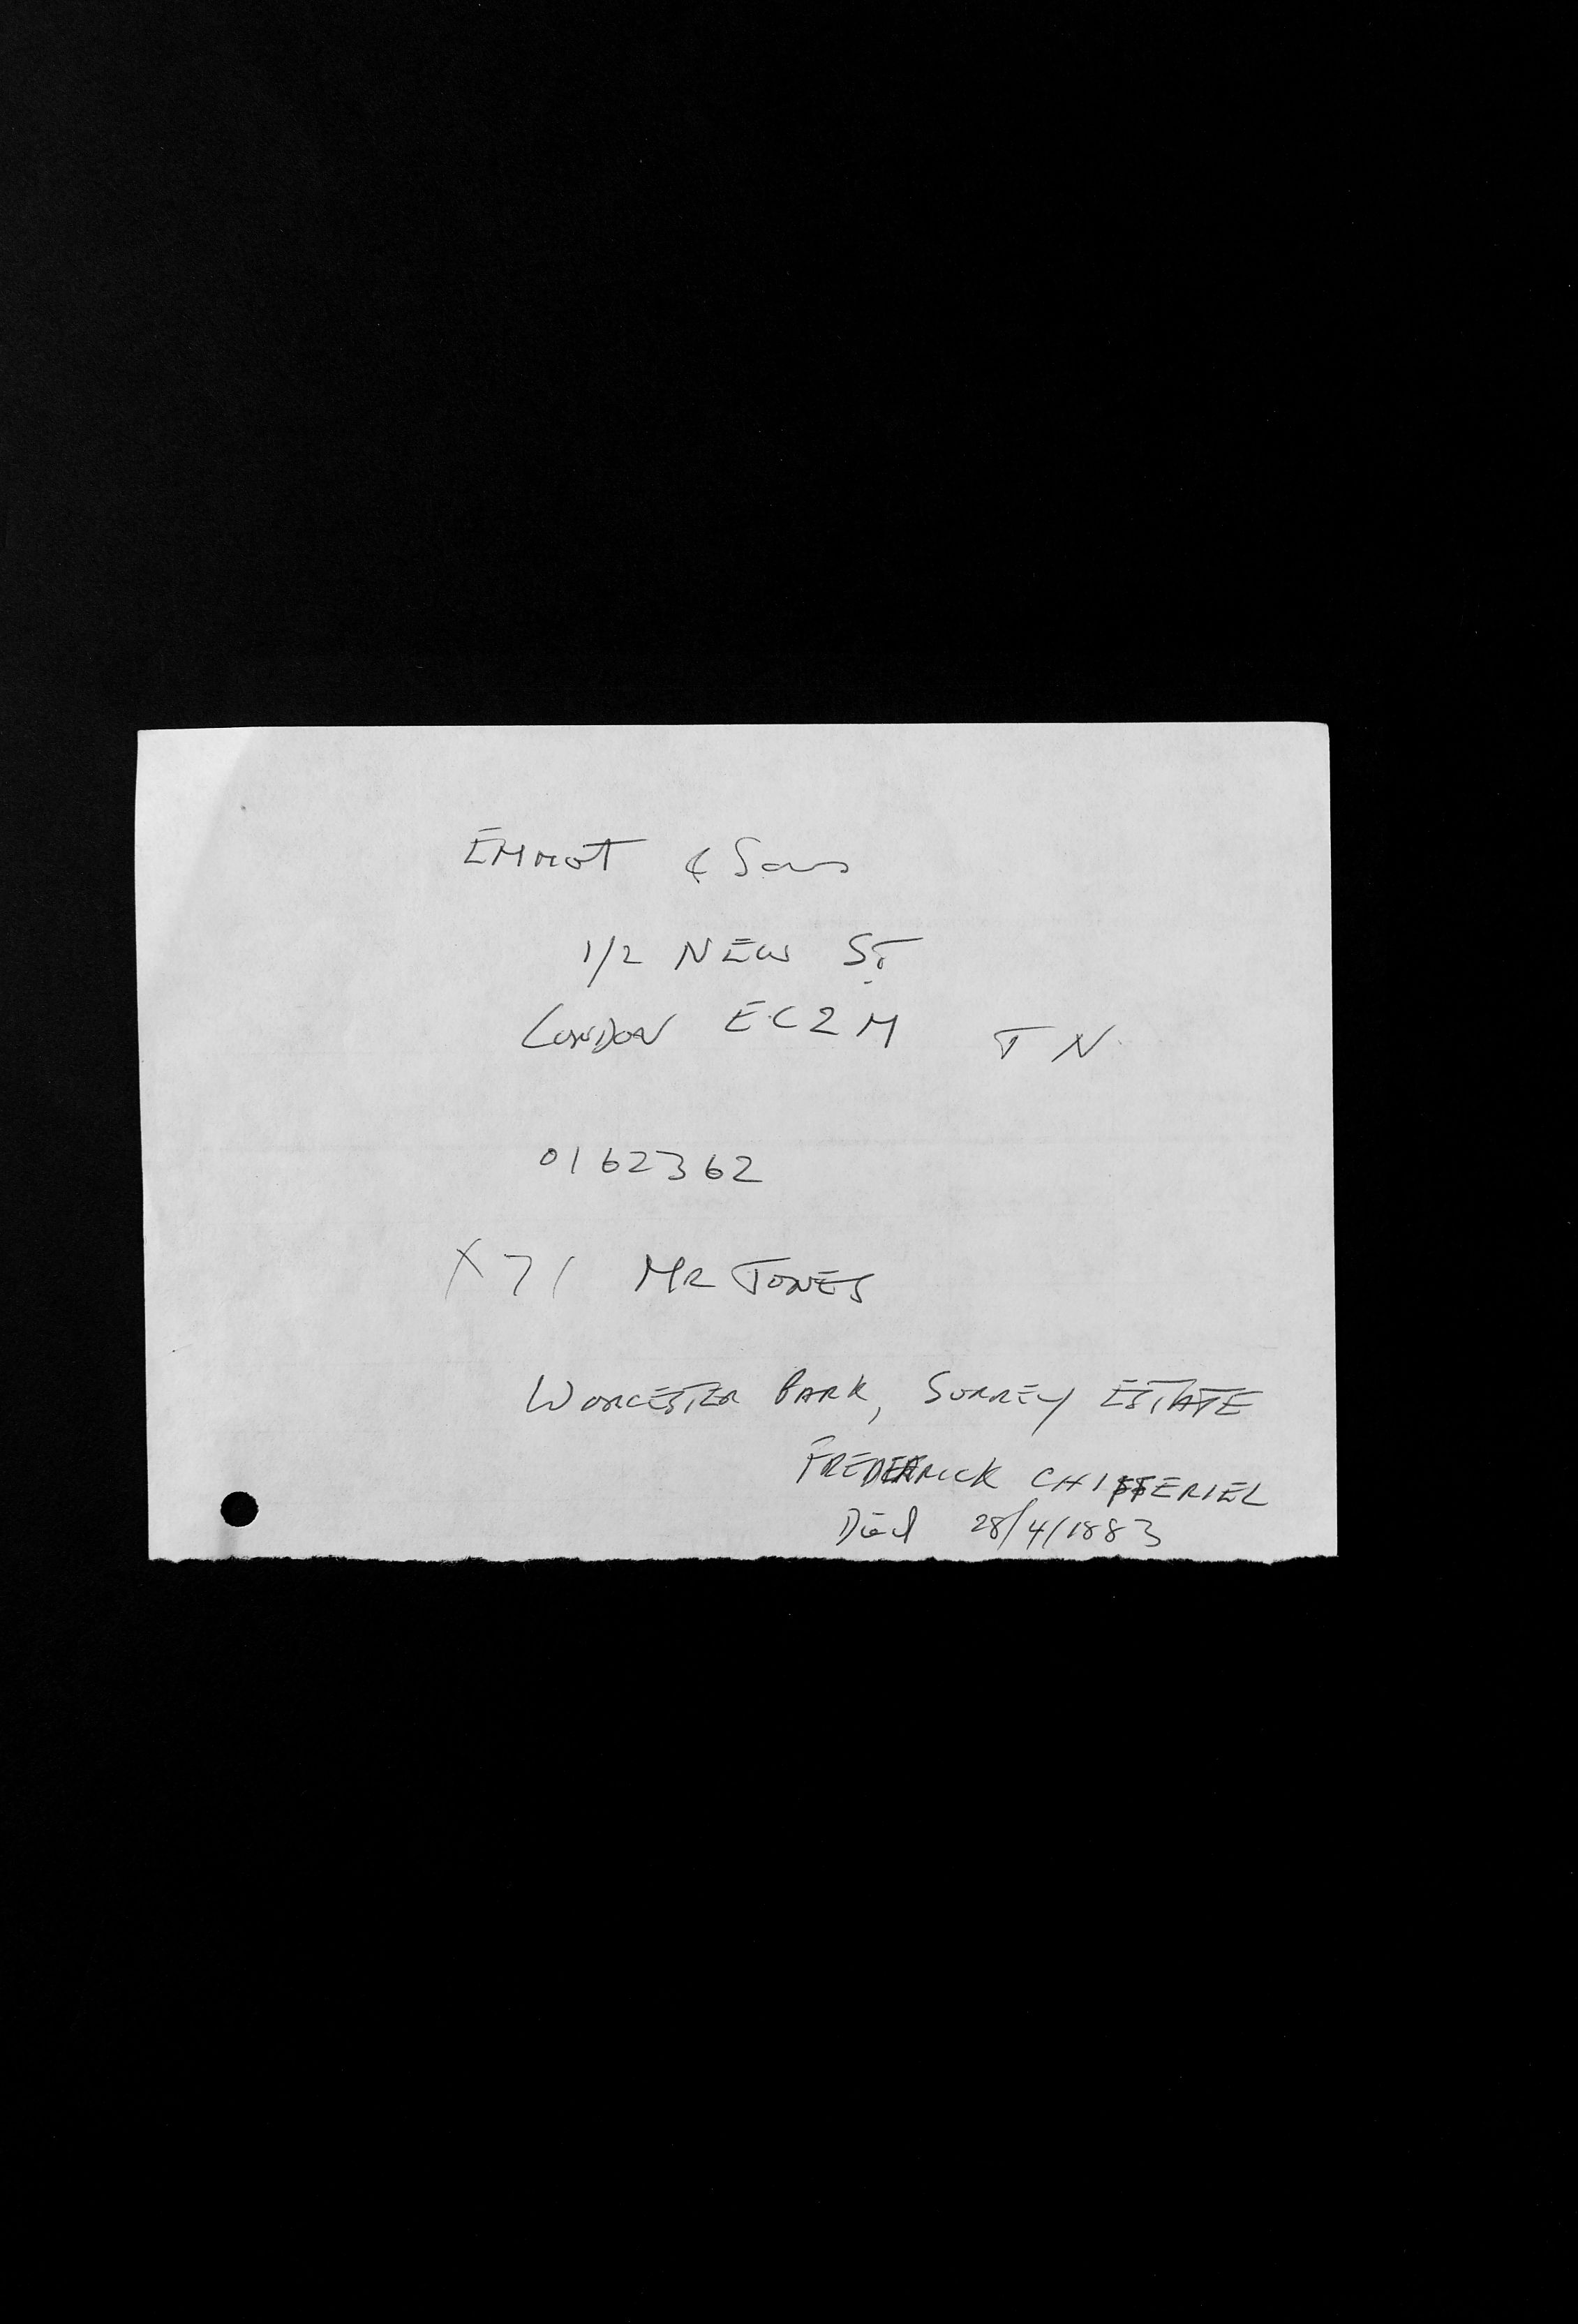 EMMOT & Sons
1/2 NEW ST
LONDON EC2M TN
0162362
X 71 MR JONES
WORCESTER PARK, SURREY ESTATE
FREDERICK
Died 28/4/1883